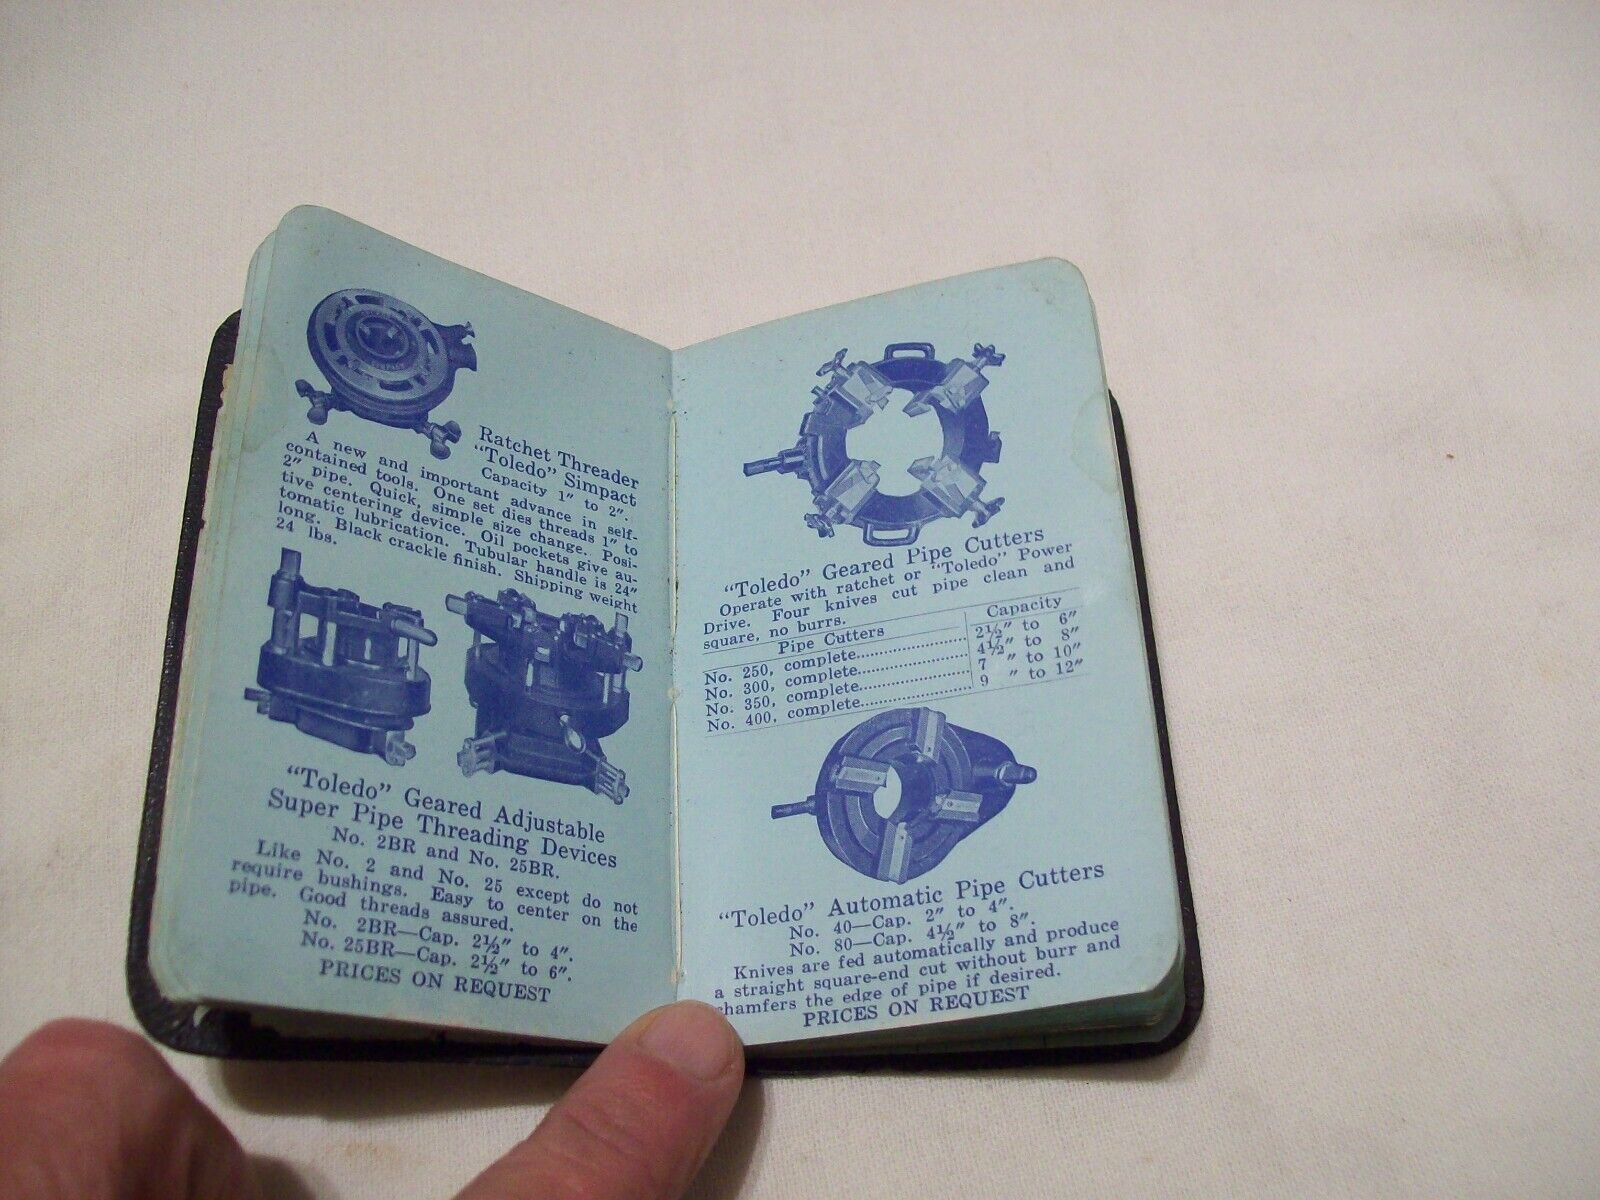 Ratchet Threader
"Toledo" Simpact
Capacity 1" to 2".
A new and important advance in self-
contained tools. One set dies threads 1" to
2" pipe. Quick, simple size change. Posi-
tive centering device. Oil pockets give au-
tomatic lubrication. Tubular handle is 24"
long. Black crackle finish. Shipping weight
24 lbs.
"Toledo" Geared Adjustable
Super Pipe Threading Devices
No. 2BR and No. 25BR.
Like No. 2 and No. 25 except do not
require bushings. Easy to center on the
pipe. Good threads assured.
No. 2BR—Cap. 2½" to 4".
No. 25BR—Cap. 2½" to 6".
PRICES ON REQUEST
"Toledo" Geared Pipe Cutters
Operate with ratchet or "Toledo" Power
Drive. Four knives cut pipe clean and
square, no burrs.
Pipe Cutters Capacity
No. 250, complete.................... 2½" to 6"
No. 300, complete.................... 4½" to 8"
No. 350, complete.................... 7 " to 10"
No. 400, complete.................... 9 " to 12"
"Toledo" Automatic Pipe Cutters
No. 40—Cap. 2" to 4".
No. 80—Cap. 4½" to 8".
Knives are fed automatically and produce
a straight square-end cut without burr and
chamfers the edge of pipe if desired.
PRICES ON REQUEST